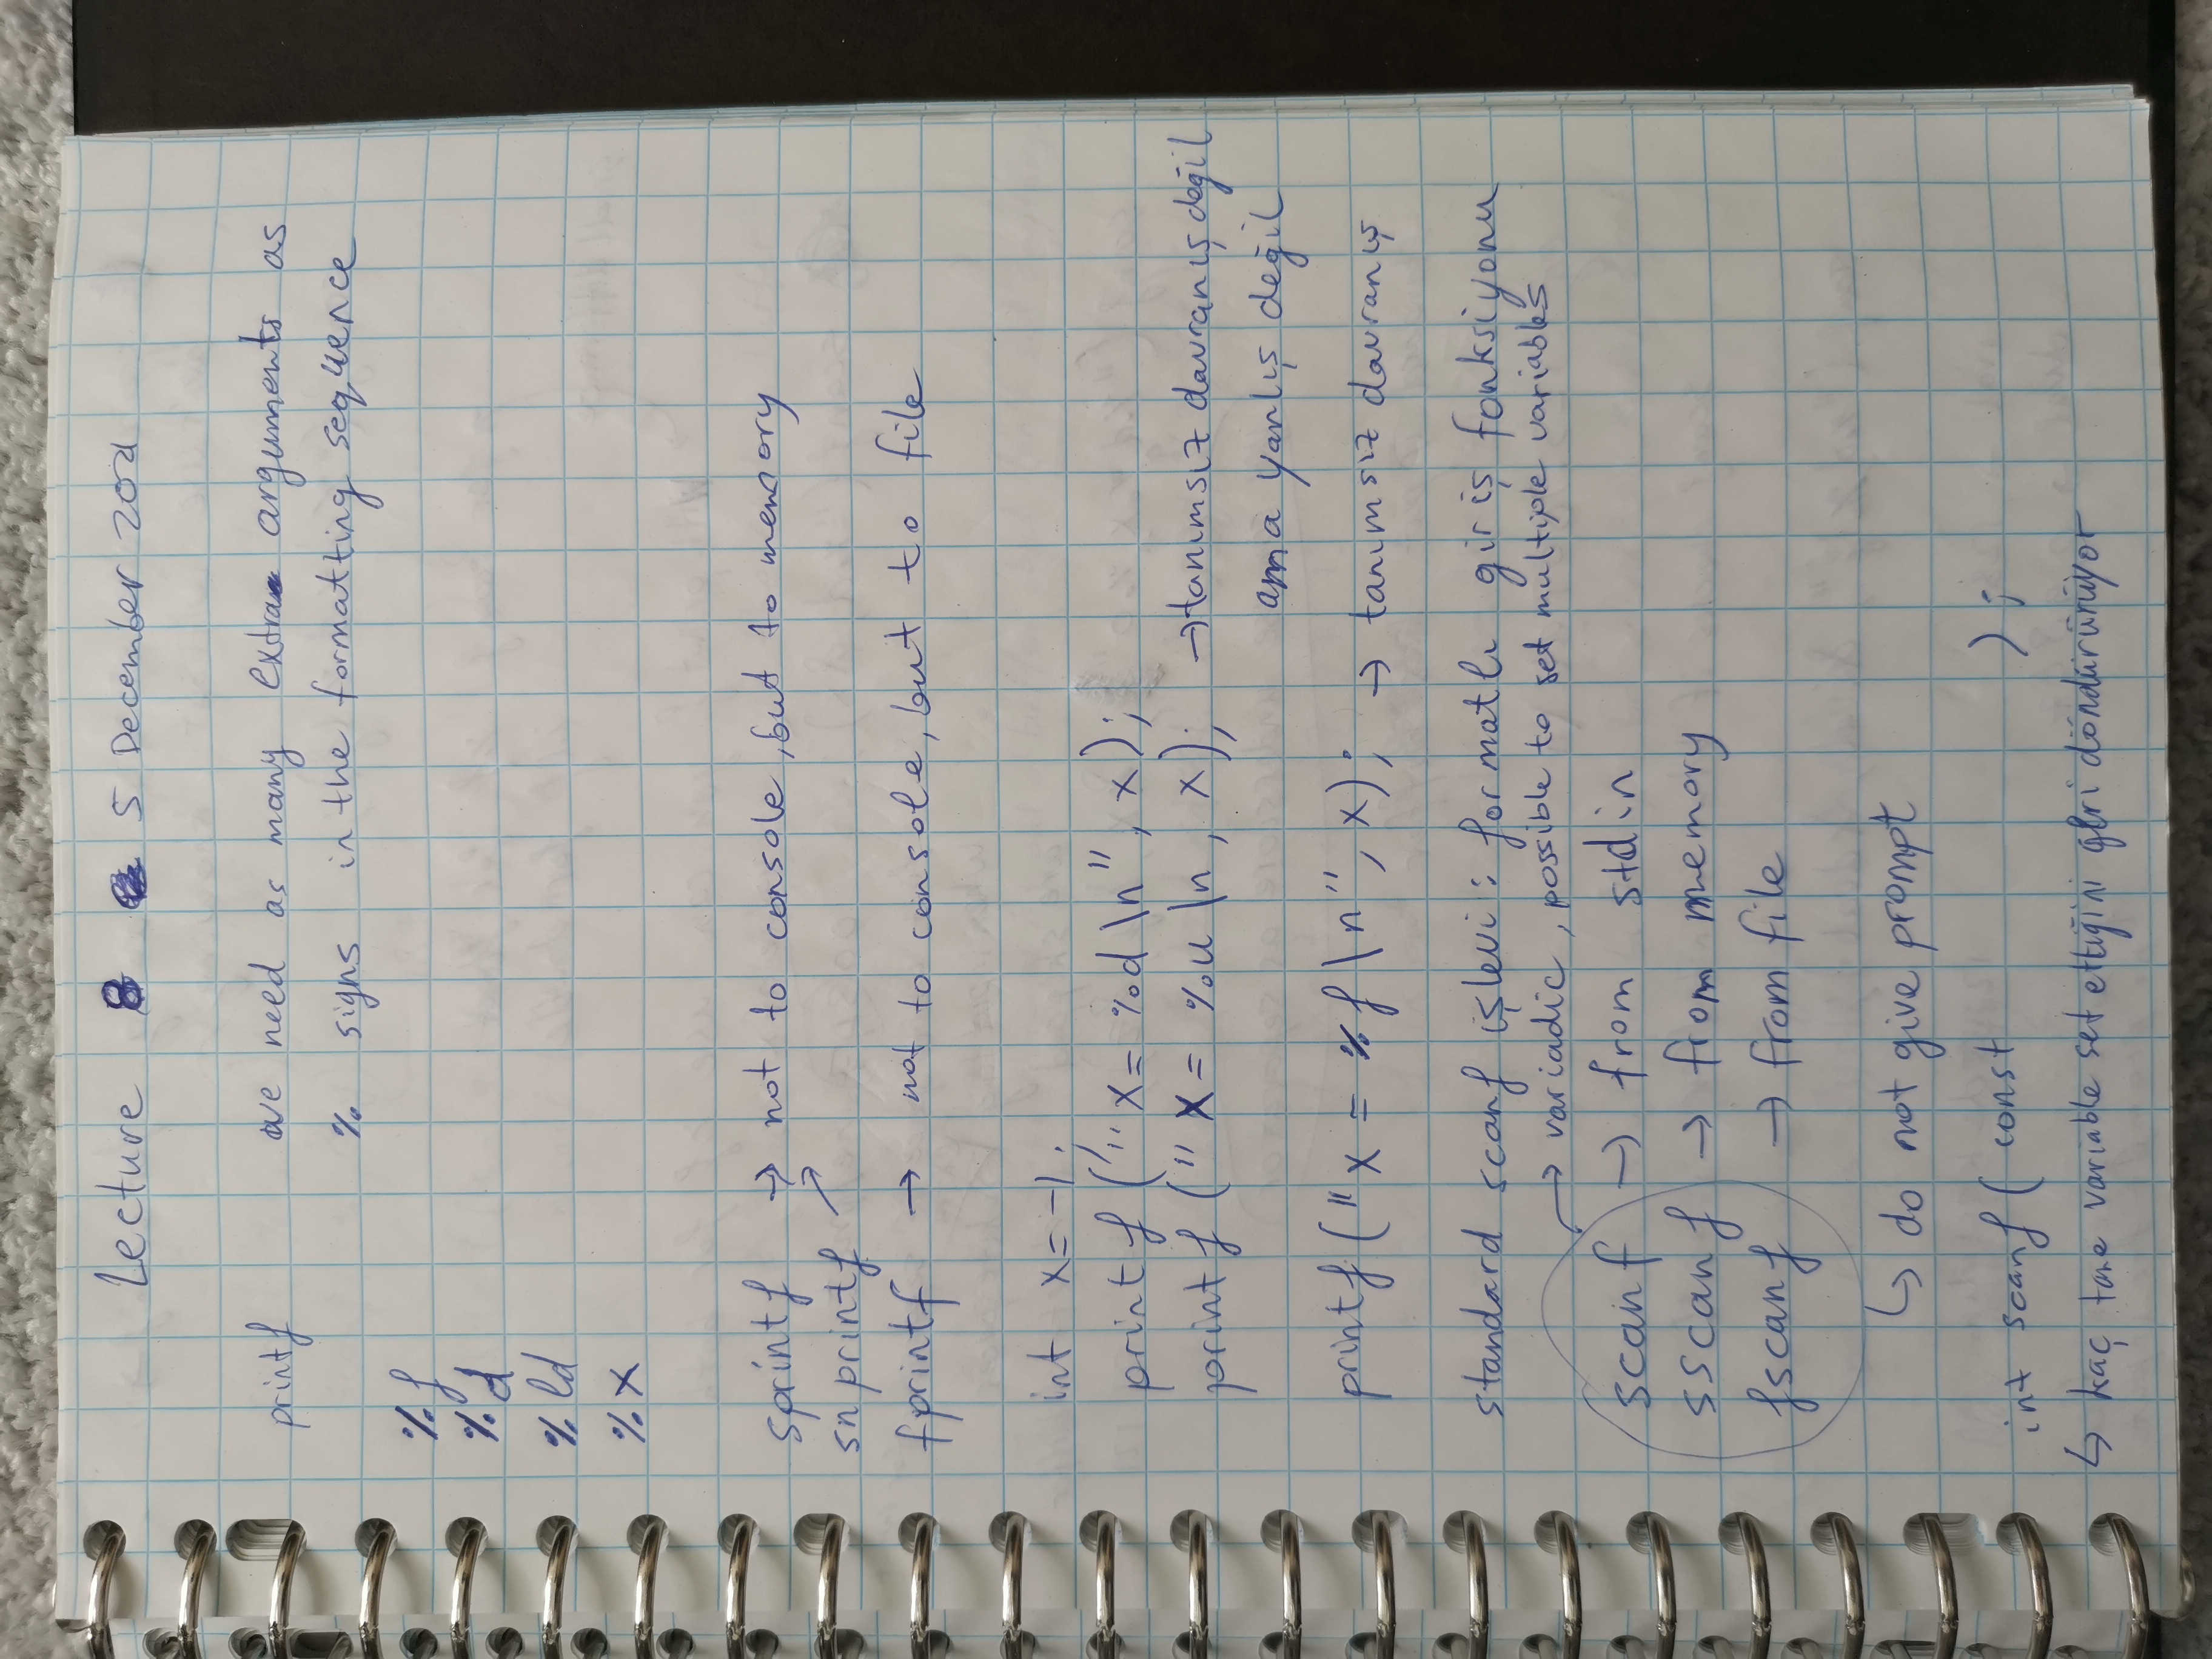 Lecture 8 5 December 2021
printf we need as many extra arguments as
% signs in the formatting sequence
%f
%d
%ld
%x
sprintf → not to console, but to memory
snprintf ↗
fprintf → not to console, but to file
int x = -1;
printf ("x = %d \n", x);
printf ("x = %u \n, x); → tanımsız davranış değil
ama yanlış değil
printf ("x = %f \n", x); → tanımsız davranış
standard scanf işlevi: formatlı giriş fonksiyonu
→ variadic, possible to set multiple variables
scanf → from stdin
sscanf → from memory
fscanf → from file
↳ do not give prompt
int scanf ( const );
↳ kaç tane variable set ettiğini geri döndürürüyor